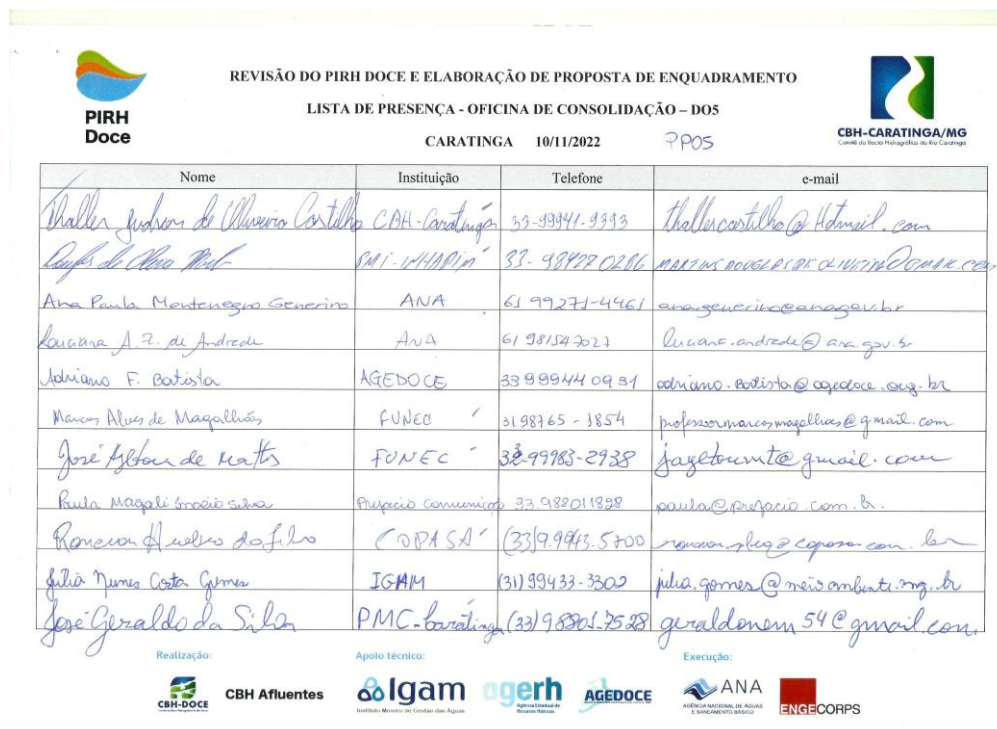 PIRH
Doce
REVISÃO DO PIRH DOCE E ELABORAÇÃO DE PROPOSTA DE ENQUADRAMENTO
LISTA DE PRESENÇA - OFICINA DE CONSOLIDAÇÃO – DO5
CARATINGA 10/11/2022 PP05
CBH-CARATINGA/MG
Comitê da Bacia Hidrográfica do Rio Caratinga
Nome Instituição Telefone e-mail
Thaller Judson de Oliveira Castilho CBH-Caratinga 33-99941-9393 thallercastilho@Hotmail.com
33-984270286
Ana Paula Montenegro Generino ANA 61 99271-4461 ana.generino@ana.gov.br
Luciana A. Z. de Andrade ANA 61 981547027 luciana.andrade@ana.gov.br
Adriano F. Batista AGEDOCE 33 99944 0931 adriano.batista@agedoce.org.br
Marcos Alves de Magalhães FUNEC 31 98765-1854 professormarcosmagalhaes@gmail.com
José de Mattos FUNEC 99983-2938
Paula Magali Silva Prefacio Comunicação 33.988011828 paula@prefacio.com.br
COPASA (33)9.9943.5700
Julia Nunes Costa Gomes IGAM (31)99433-3302 julia.gomes@meioambiente.mg.br
José Geraldo da Silva PMC-Caratinga (33)98801-7528 geraldonem54@gmail.com
Realização: Apoio técnico: Execução:
CBH-DOCE CBH Afluentes Igam agerh AGEDOCE ANA ENGECORPS
Instituto Mineiro de Gestão das Águas Agência Estadual de Recursos Hídricos AGÊNCIA NACIONAL DE ÁGUAS E SANEAMENTO BÁSICO